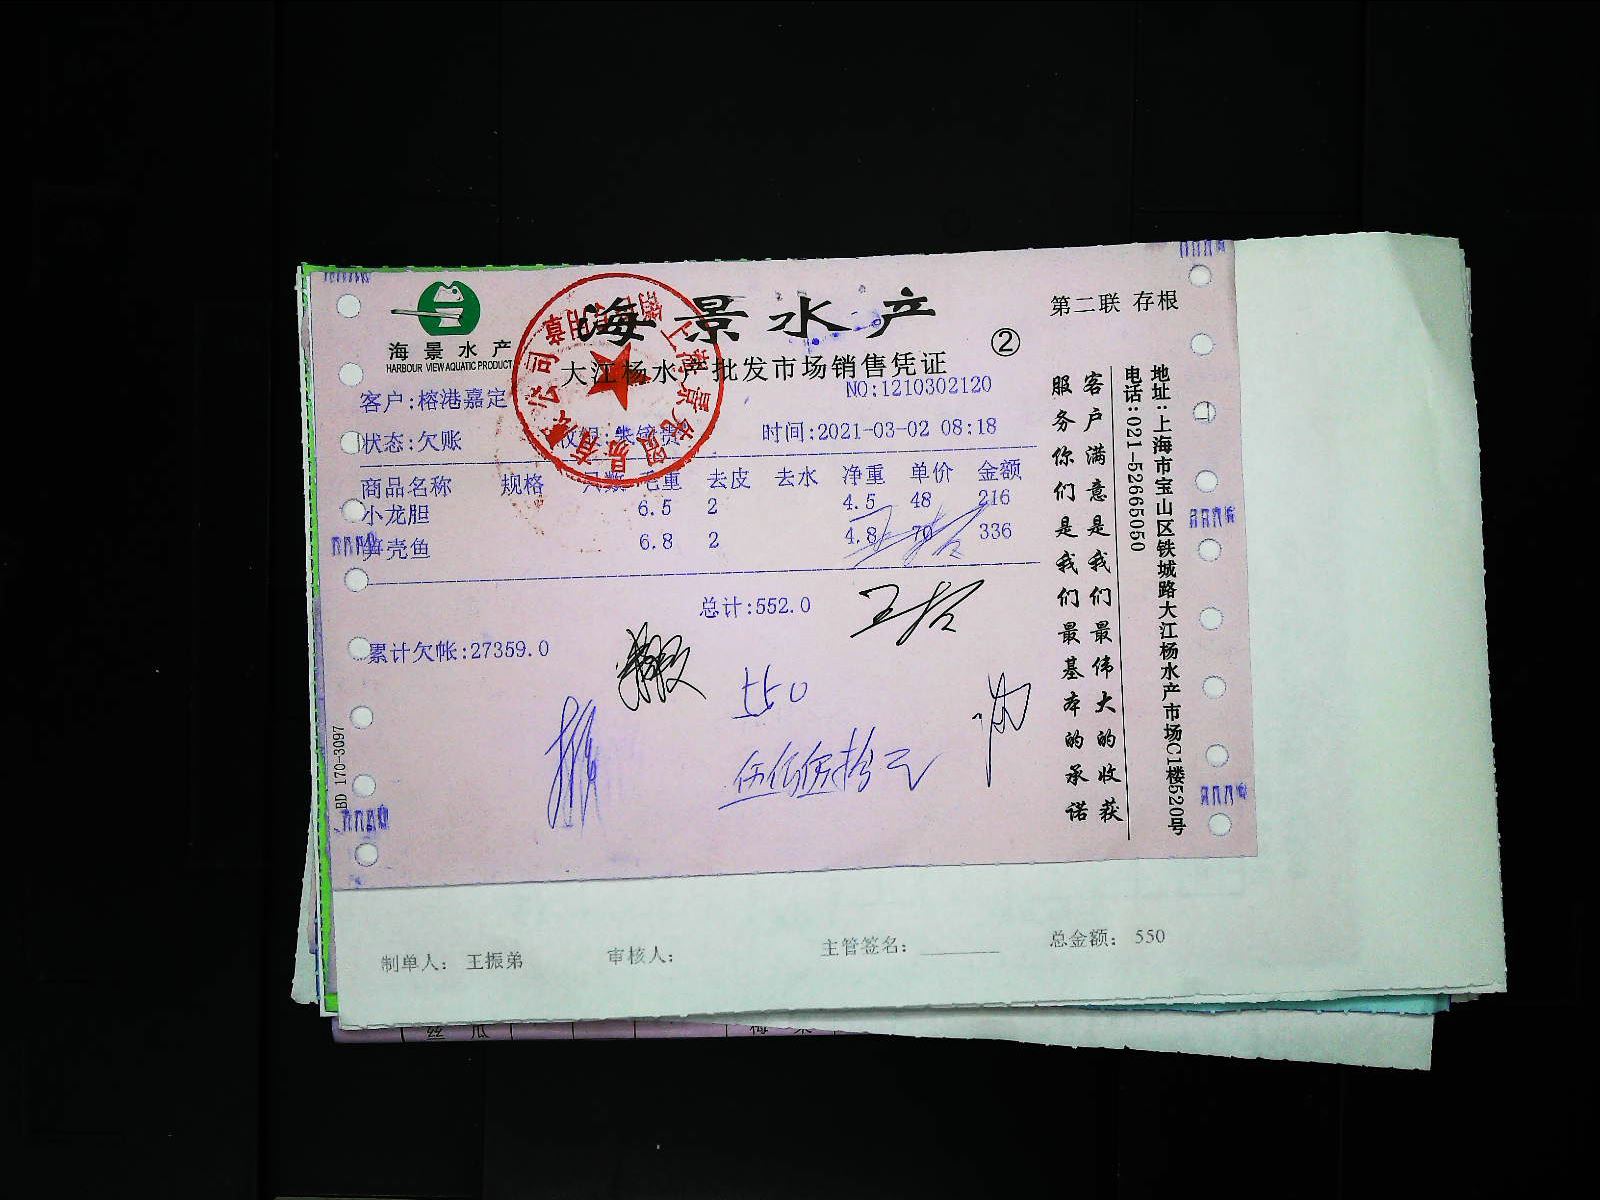 海景水产
HARBOUR VIEW AQUATIC PRODUCT
海景水产
第二联 存根
②
大江杨水产批发市场销售凭证
NO:1210302120
客户:榕港嘉定
状态:欠账
时间:2021-03-02 08:18
商品名称 规格 只数 毛重 去皮 去水 净重 单价 金额
小龙胆 6.5 2 4.5 48 216
笋壳鱼 6.8 2 4.8 70 336
总计:552.0
累计欠帐:27359.0
550
伍佰伍拾元
客户满意是我们最伟大的收获
服务你们是我们最基本的承诺
地址:上海市宝山区铁城路大江杨水产市场C1楼520号
电话:021-52665050
BD 170-3097
制单人: 王振弟 审核人: 主管签名: 总金额: 550
丝瓜